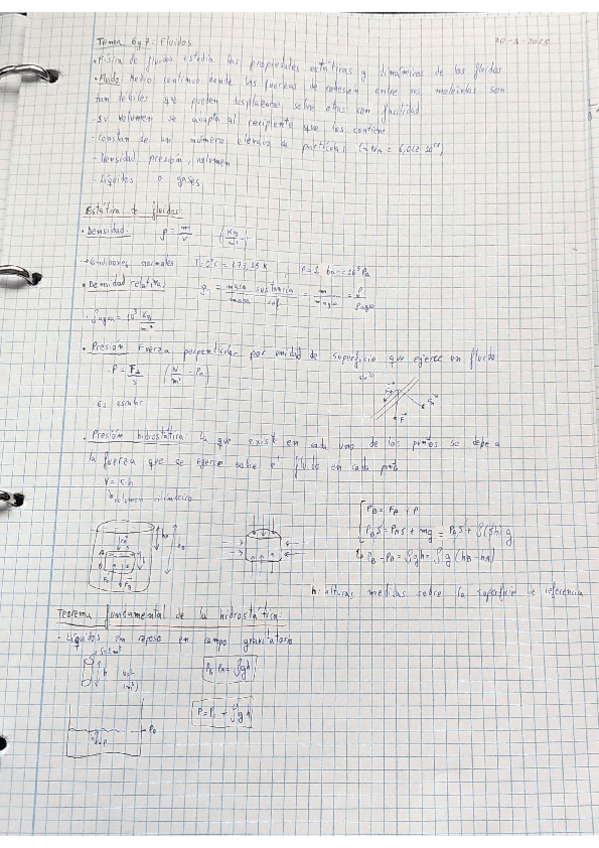 Tema 6 y 7: Fluidos
• Física de fluidos estudia las propiedades estáticas y dinámicas de los fluidos
• Fluido: Medio continuo donde las fuerzas de cohesión entre sus moléculas son
tan débiles que pueden desplazarse sobre ellas con facilidad
- Su volumen se adapta al recipiente que los contiene
- Constan de un número elevado de partículas
- Densidad, presión, volumen
- Líquidos o gases
Estática de fluidos:
• Densidad: ρ = m/V (Kg/m³)
→ Condiciones normales T = 0°C = 273,15 K , P = 1 bar = 10⁵ Pa
• Densidad relativa: = masa sustancia / masa = m / = ρ / ρ agua
- ρagua = 10³ Kg/m³
• Presión: Fuerza perpendicular por unidad de superficie que ejerce un fluido
- P = F/S (N/m² = Pa)
Es escalar
• Presión hidrostática: La que existe en cada uno de los puntos se debe a
la fuerza que se ejerce sobre el fluido en cada punto
V = S·h
volumen cilíndrico
P_B S = P_A S + mg = P_A S + ρ(Sh)g
P_B - P_A = ρgh = ρg(h_B - h_A)
h: alturas medidas sobre la superficie de referencia
Teorema fundamental de la hidrostática:
• Líquidos en reposo en campo gravitatorio
S = 1 m²
h
P_B - P_A = ρgh
P = P₀ + ρgh
P₀